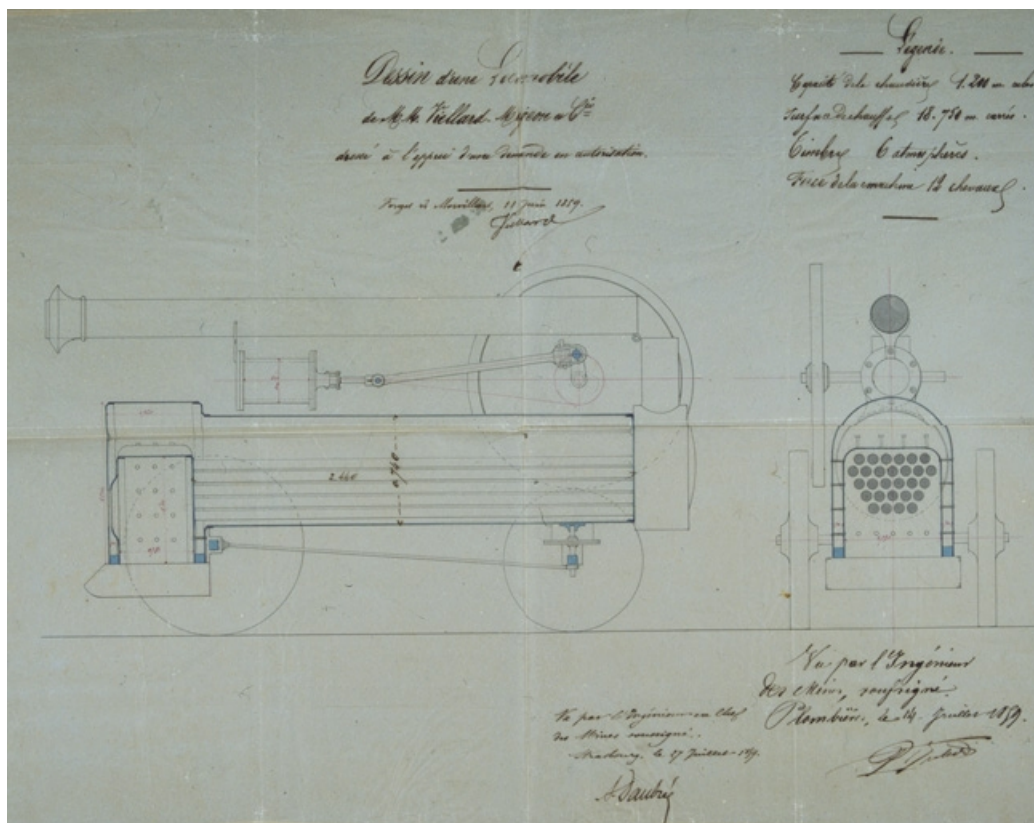 Dessin d'une Locomobile
de M.M. Viellard-Migeon & Cie
dressé à l'appui d'une demande en autorisation.
Forges de Morvillars, 11 Juin 1859.
Viellard
Légende.
Capacité de la chaudière 1.200 m. cubes
Surface de chauffe 18.750 m. carrés.
Timbre 6 atmosphères.
Force de la machine 12 chevaux
2.440
0.740
Vu par l'Ingénieur
des Mines, soussigné.
Plombières, le 14 Juillet 1859.
Vu par l'Ingénieur en Chef
des Mines soussigné.
Strasbourg, le 27 Juillet 1859.
A Daubrée